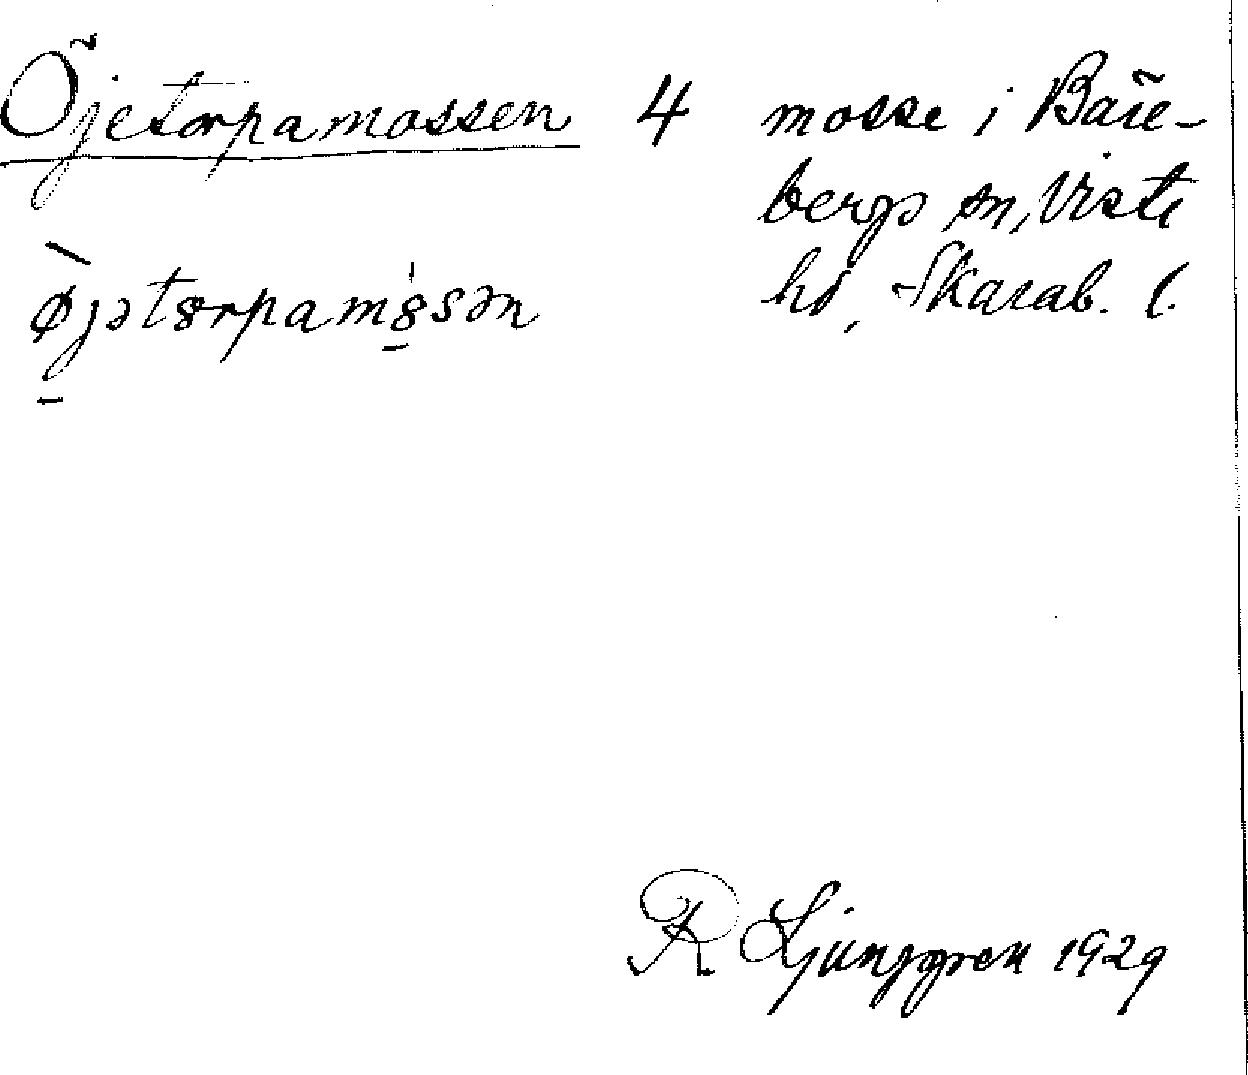 Öjetorpamossen 4 mosse i Bäre-
bergs sn, Viste
hd, Skarab. l.
øjətɷrpamɷsən
R Ljunggren 1929